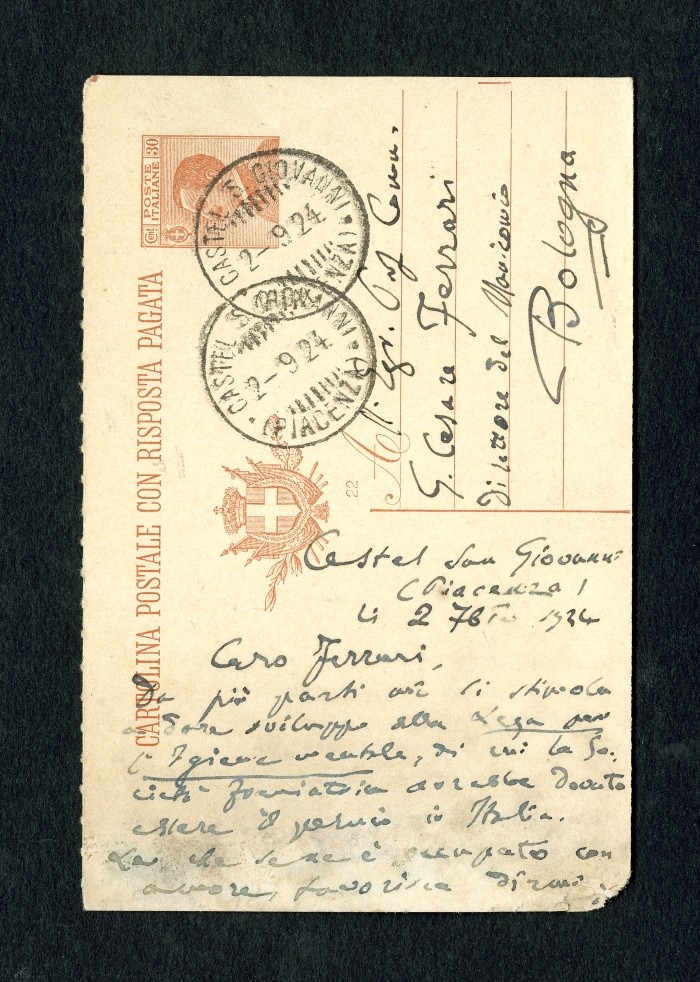 CARTOLINA POSTALE CON RISPOSTA PAGATA
POSTE ITALIANE
Cent 30
CASTEL S. GIOVANNI
2-9.24
(PIACENZA)
CASTEL S. GIOVANNI
2-9.24
(PIACENZA)
22
A
Egr. Prof. Comm.
G. Cesare Ferrari
Direttore del Manicomio
Bologna
Castel San Giovanni
(Piacenza)
li 2 7bre 1924
Caro Ferrari,
Da più parti mi si stimola
a dare sviluppo alla Lega per
l'Igiene mentale, di cui la So-
cietà Freniatria avrebbe dovuto
essere il pernio in Italia.
Lei che se ne è occupato con
amore, favorisca dirmi